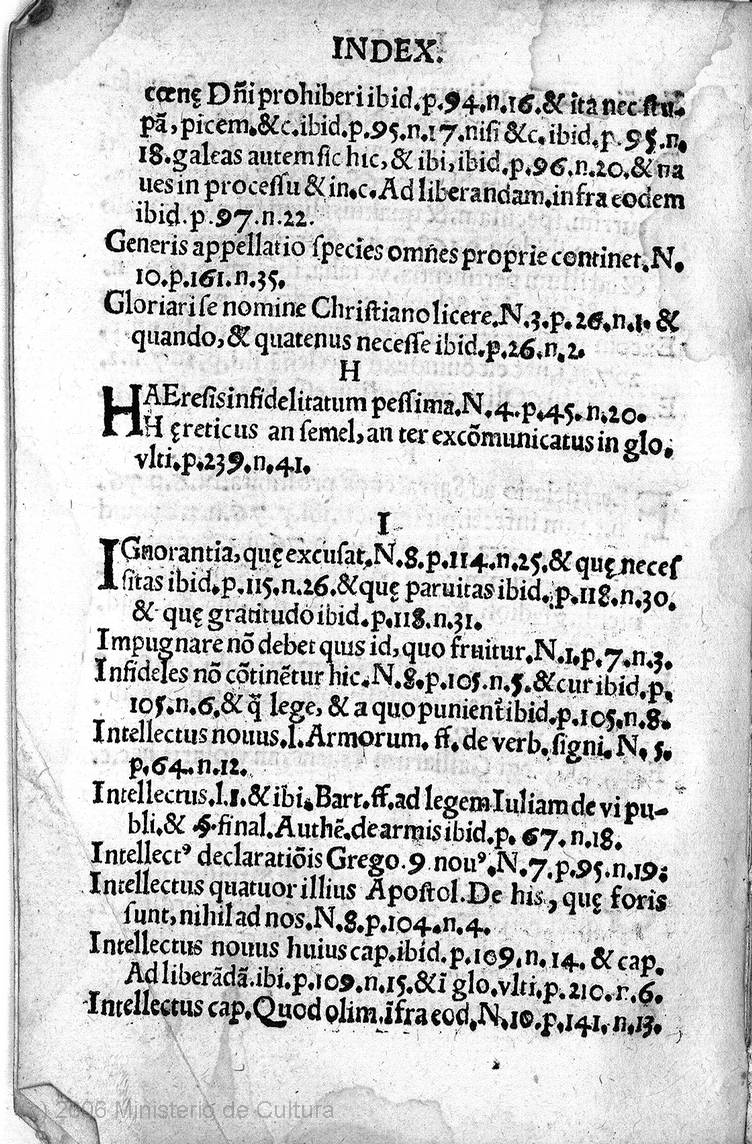 INDEX.
cœnę Dñi prohiberi ibid.p.94.n.16.& ita nec ſtu-
pã, picem,&c.ibid.p.95.n.17.niſi &c.ibid.p.95.n.
18.galeas autem ſic hic, & ibi, ibid.p.96.n.20.& na
ues in proceſſu & in.c.Ad liberandam.infra eodem
ibid.p.97.n.22.
Generis appellatio ſpecies omnes proprie continet.N.
10.p.161.n.35.
Gloriari ſe nomine Chriſtiano licere.N.3.p.26.n.1.&
quando, & quatenus neceſſe ibid.p.26.n.2.
H
HAEreſis infidelitatum peſſima.N.4.p.45.n.20.
Hęreticus an ſemel, an ter excõmunicatus in glo.
vlti.p.239.n.41.
I
IGnorantia, quę excuſat.N.8.p.114.n.25.& quę neceſ
ſitas ibid.p.115.n.26.& quę paruitas ibid.p.118.n.30.
& quę gratitudo ibid.p.118.n.31.
Impugnare nõ debet quis id, quo fruitur.N.1.p.7.n.3.
Infideles nõ cõtinẽtur hic.N.8.p.105.n.5.& cur ibid.p.
105.n.6.& q̃ lege, & a quo punient̃ ibid.p.105.n.8.
Intellectus nouus.l.Armorum.ff.de verb.ſigni.N.5.
p.64.n.12.
Intellectus.l.1.& ibi.Bart.ff.ad legem Iuliam de vi pu-
bli.& §.final.Authẽ.de armis ibid.p.67.n.18.
Intellectꝰ declaratiõis Grego.9.nouꝰ.N.7.p.95.n.19.
Intellectus quatuor illius Apoſtol.De his, quę foris
ſunt, nihil ad nos.N.8.p.104.n.4.
Intellectus nouus huius cap.ibid.p.109.n.14.& cap.
Ad liberãdã.ibi.p.109.n.15.& ĩ glo.vlti.p.210.n.6.
Intellectus cap.Quod olim.ĩfra eod.N.10.p.141.n.13.
2006 Ministerio de Cultura